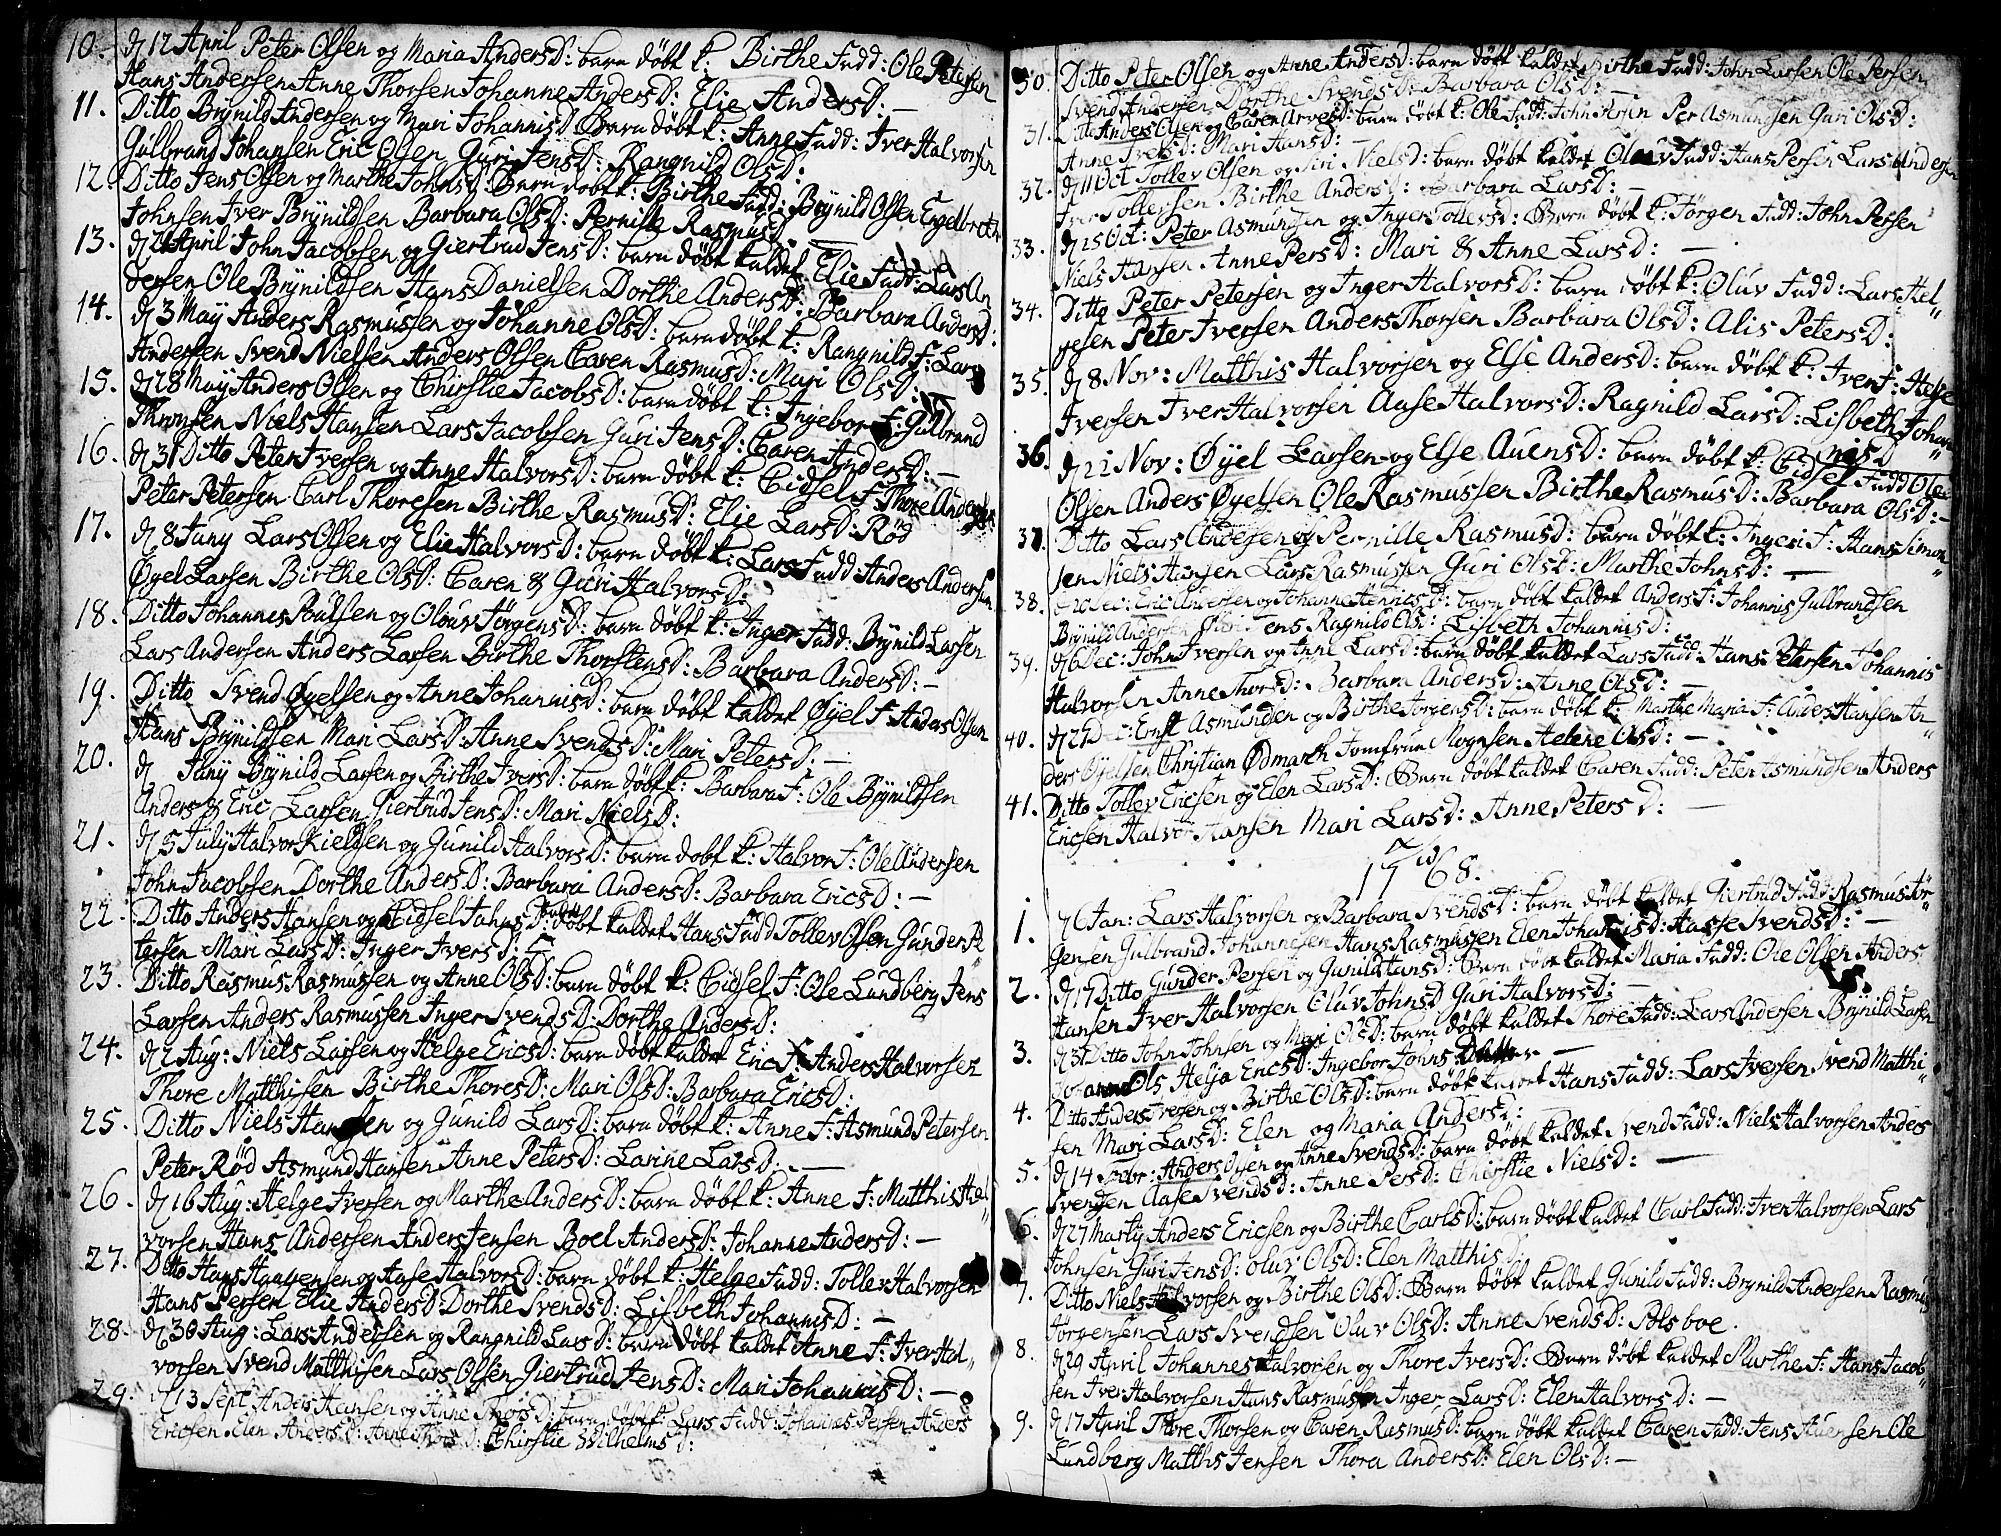 10. d 12 April Peter Olsen og Maria AndersD: barn döbt k: Birthe Fadd: Ole Petersen
Hans Andersen Anne Thorsen Johanne AndersD: Elie AndersD: —
11. Ditto Brÿnild Andersen og Mari JohannisD Barn döbt k: Anne Fadd: Iver Halvorsen
Gulbrand Johansen Eric Olsen Guri JensD: Rangnild OlsD:
12. Ditto Jens Olsen og Marthe JohnsD: Barn döbt k: Birthe Fadd: Brÿnild Olsen Engelbreth
Johnsen Iver Brÿnildsen Barbara OlsD: Pernille RasmusD
13. d April John Jacobsen og Giertrud JensD: barn döbt kaldet Elie Fadd: Lars An
dersen Ole Brÿnildsen Hans Danielsen Dorthe AndersD: Barbara AndersD:
14. d 3 Maÿ Anders Rasmussen og Johanne OlsD: barn döbt k: Rangnild F: Lars
Andersen Svend Nielsen Anders Olsen Caren RasmusD: Mari OlsD: —
15. d 28 Maÿ Anders Olsen og Chirstie JacobsD: barn döbt k: Ingebor F: Gulbrand
Thronsen Niels Hansen Lars Jacobsen Guri JensD: Caren AndersD: —
16. d 31 Ditto Peter Iversen og Anne HalvorsD: barn döbt k: Cidsel F: Thore Andersen
Peter Petersen Carl Thoresen Birthe RasmusD: Elie LarsD: Röd
17. d 8 Junÿ Lars Olsen og Elie HalvorsD: barn döbt k: Lars Fadd Anders Andersen
Øyel Larsen Birthe OlsD: Caren & Guri HalvorsD:
18. Ditto Johannes Poulsen og Olouv JörgensD: barn döbt k: Inger Fadd: Brÿnild Larsen
Lars Andersen Anders Larsen Birthe ThorstensD: Barbara AndersD: —
19. Ditto Svend Øyelsen og Anne JohannisD: barn döbt kaldet Øyel F: Anders Olsen
Hans Brÿnildsen Mari LarsD: Anne SvendsD: Mari PetersD: —
20. d Junÿ Brÿnild Larsen og Birthe IversD: barn döbt k: Barbara F: Ole Brÿnildsen
Anders & Eric Larsen Giertrud JensD: Mari NielsD:
21. d 5 Julÿ Halvor Kieldsen og Gunild HalvorsD: barn döbt k: Halvor F: Ole Andersen
John Jacobsen Dorthe AndersD: Barbara AndersD: Barbara EricsD: —
22. Ditto Anders Hansen og Cidsel döbt kaldet Hans Fadd Tollev Olsen Gunder Pe
tersen Mari LarsD: Inger IversD:
23. Ditto Rasmus Rasmussen og Anne OlsD: barn döbt k: Cidsel F: Ole Lundberg Jens
Larsen Anders Rasmussen Inger SvendsD: Dorthe AndersD:
24. d 2 Aug: Niels Larsen og Helge EricsD: barn döbt kaldet Eric F: Anders Halvorsen
Thore Matthisen Birthe ThoresD: Mari OlsD: Barbara EricsD:
25. Ditto Niels Hansen og Gunild LarsD: barn döbt k: Anne F: Asmund Petersen
Peter Röd Asmund Hansen Anne PetersD: Larine LarsD: —
26. d 16 Aug: Helge Iversen og Marthe AndersD: barn döbt k: Anne F: Matthis Hal
vorsen Hans Andersen Anders Jensen Boel AndersD: Johanne AndersD: —
27. Ditto Hans og Aase HalvorsD: barn döbt k: Helge Fadd: Tollev Halvorsen
Hans Persen Elie AndersD: Dorthe SvendsD: Lisbeth JohannisD: —
28. d 30 Aug: Lars Andersen og Rangnild LarsD: barn döbt kaldet Anne F: Iver Hal
vorsen Svend Matthisen Lars Olsen Giertrud JensD: Mari JohannisD: —
29. 13 Sept: Anders Hansen og Anne ThorsD: barn döbt k: Lars Fadd: Johannes Persen Anders
Ericsen Elen AndersD: Anne ThorsD: Chirstie WilhelmsD:
30. Ditto Peter Olsen og Anne AndersD: barn döbt kaldet Birthe Fadd: John Larsen Ole Persen
Svend Andersen Dorthe SvendsD: Barbara OlsD: —
31. Ditto Anders Olsen og Caren ArvesD: barn döbt k: Ole Fadd: John Per Asmundsen Guri OlsD:
Anne IversD: Mari HansD:
32. d 11 Oct Tollev Olsen og Siri NielsD: barn döbt kaldet Oluv Fadd: Hans Persen Lars Andersen
Iver Tollevsen Birthe AndersD: Barbara LarsD: —
33. d 25 Oct: Peter Asmundsen og Inger TollevsD: Barn döbt k: Jörgen Fadd: John Persen
Niels Hansen Anne PersD: Mari & Anne LarsD: —
34. Ditto Peter Petersen og Inger HalvorsD: barn döbt k: Oluv Fadd: Lars Hel
gesen Peter Iversen Anders Thorsen Barbara OlsD: Alis PetersD:
35. d 8 Nov: Matthis Halvorsen og Else AndersD: barn döbt k: Iver F:
Iversen Iver Halvorsen Aase HalvorsD: Ragnild LarsD: Lisbeth Johan
nisD
36. d 22 Nov: Øyel Larsen og Else AuensD: barn döbt k: Cidsel Fadd Ole
Olsen Anders Øyelsen Ole Rasmussen Birthe RasmusD: Barbara OlsD: —
37. Ditto Lars Andersen og Pernille RasmusD: barn döbt k: Ingeri F: Hans Simon
sen Niels Hansen Lars Rasmussen Guri OlsD: Marthe JohnsD: —
38. Dec: Eric Andersen og Johanne HenricsD: barn döbt kaldet Anders F: Johannis Gulbrandsen
Brÿnild Andersen JensD Ragnild OlsD: Lisbeth JohannisD:
39. d 6 Dec: John Iversen og Anne LarsD: barn döbt kaldet Lars Fadd: Hans Petersen Johannis
Halvorsen Anne ThorsD: Barbara AndersD: Anne OlsD: —
40. d 27 D: Ernst Asmundsen og Birthe JörgensD: barn döbt k: Marthe Maria F: Anders Hansen An
ders Øyelsen Christian Ødmarck Jomfrue Mognsen Helene OlsD: —
41. Ditto Tollev Ericsen og Elen LarsD: Barn döbt kaldet Caren Fadd: Peter Asmundsen Anders
Ericsen Halvor Hansen Mari LarsD: Anne PetersD: —
1768.
1. d 6 Jan: Lars Halvorsen og Barbara SvendsD: barn döbt kaldet Giertrud Fadd: Rasmus Jör
gensen Gulbrand Johannesen Hans Rasmussen Elen D: Aasse SvendsD: —
2. d 17 Ditto Gunder Persen og Gunild HansD: Barn döbt kaldet Maria Fadd: Ole Olsen Anders
Hansen Iver Halvorsen Oluv JohnsD Guri HalvorsD: —
3. d 31 Ditto John Johnsen og Mari OlsD: barn döbt kaldet Thore Fadd: Lars Andersen Brÿnild Larsen
Ols Helja EricsD: Ingebor Johns Datter —
4. Ditto Anders Iversen og Birthe OlsD: barn döbt kaldet Hans Fadd: Lars Iversen Svend Matthi
sen Mari LarsD: Elen og Maria AndersD:
5. d 14 Anders og Anne SvendsD: barn döbt kaldet Svend Fadd: Niels Halvorsen Anders
Svendsen Aase SvendsD: Anne PersD: Chirstie NielsD: —
6. d 27 Martÿ Anders Ericsen og Birthe CarlsD: barn döbt kaldet Carl Fadd: Iver Halvorsen Lars
Johnsen Guri JensD: Oluv OlsD: Elen MatthisD:
7. Ditto Niels Halvorsen og Birthe OlsD: Barn döbt kaldet Gunild Fadd: Brÿnild Andersen Rasmus
Jörgensen Lars Svendsen Oluv OlsD: Anne SvendsD: Solsboe.
8. d 29 April Johannes Halvorsen og Thore IversD: Barn döbt kaldet Marthe F: Hans Jacob
sen Iver Halvorsen Hans Rasmussen Inger LarsD: Elen HalvorsD: —
9. d 17 April Thore Thorsen og Caren RasmusD: barn döbt kaldet Caren Fadd: Jens Auensen Ole
Lundberg Matths Jensen Thora AndersD: Elen OlsD: —